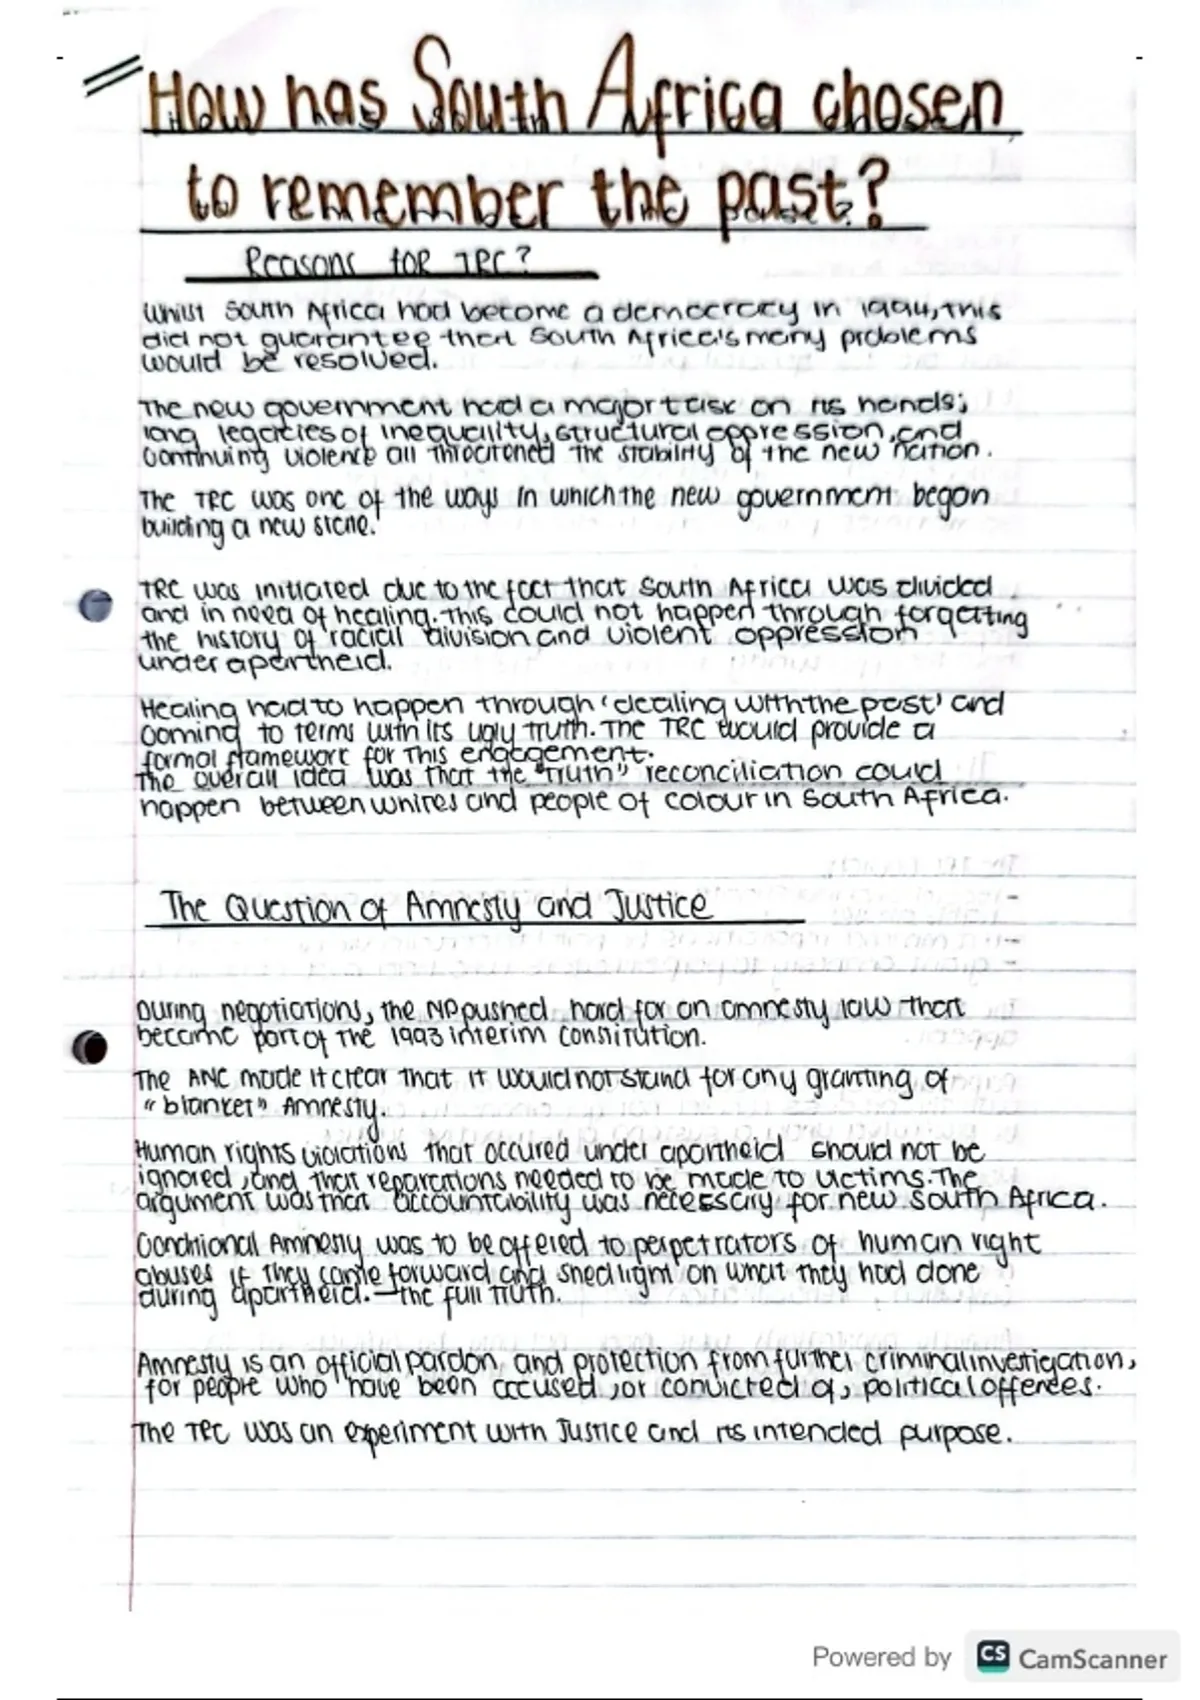 How has South Africa chosen
to remember the past?
Reasons for TRC?
Whilst South Africa had become a democracy in 1994, this
did not guarantee that South Africa's many problems
would be resolved.
The new government had a major task on its hands;
long legacies of inequality, structural oppression, and
continuing violence all threatened the stability of the new nation.
The TRC was one of the ways in which the new government began
building a new state.
TRC was initiated due to the fact that South Africa was divided
and in need of healing. This could not happen through forgetting
the history of racial division and violent oppression
under apartheid.
Healing had to happen through 'dealing with the past' and
coming to terms with its ugly truth. The TRC would provide a
formal framework for this engagement.
The overall idea was that the "truth" reconciliation could
happen between whites and people of colour in South Africa.
The Question of Amnesty and Justice
During negotiations, the NP pushed hard for an amnesty law that
became part of the 1993 interim constitution.
The ANC made it clear that it would not stand for any granting of
"blanket" Amnesty.
Human rights violations that occured under apartheid should not be
ignored, and that reparations needed to be made to victims. The
argument was that accountability was necessary for new South Africa.
Conditional Amnesty was to be offered to perpetrators of human right
abuses if they came forward and shed light on what they had done
during apartheid. — the full truth.
Amnesty is an official pardon, and protection from further criminal investigation,
for people who have been accused, or convicted of, political offences.
The TRC was an experiment with Justice and its intended purpose.
Powered by CS CamScanner